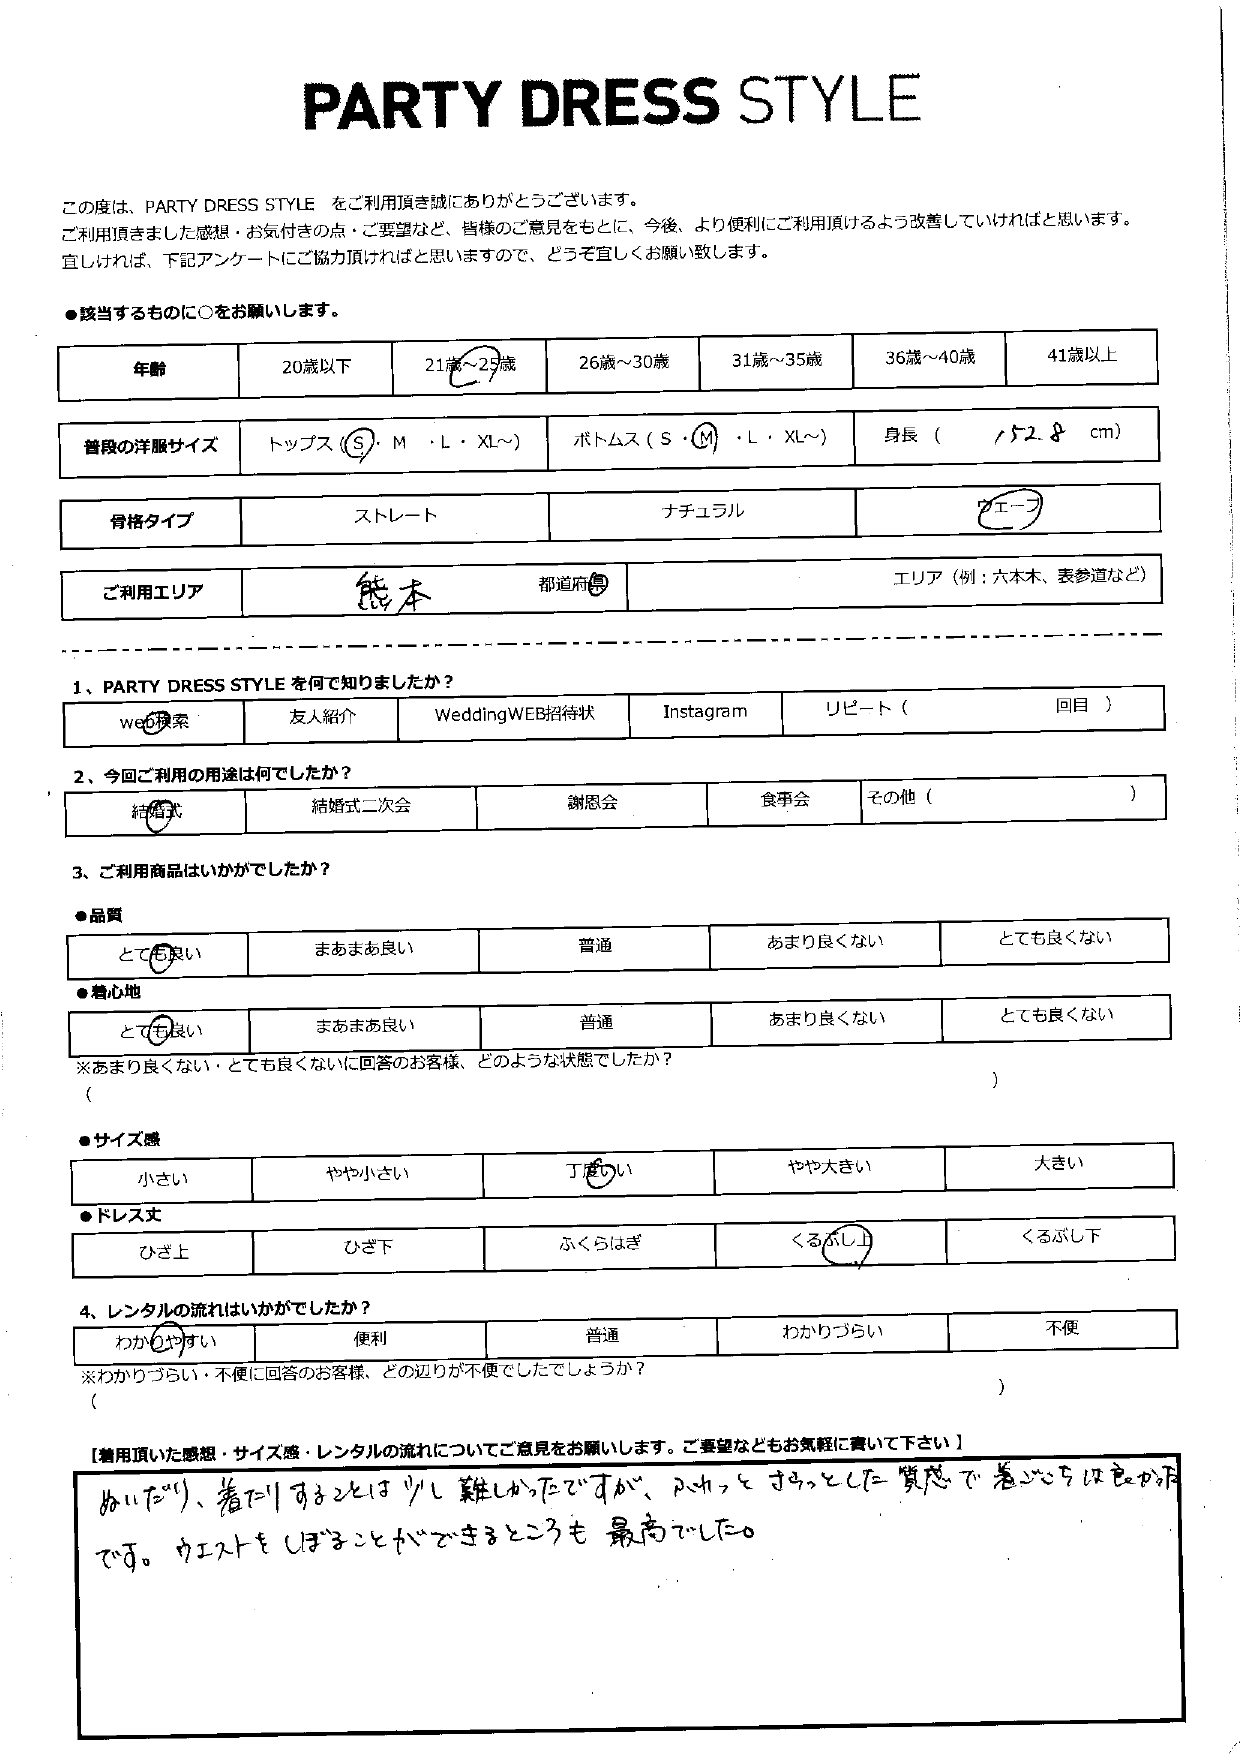 PARTY DRESS STYLE
この度は、PARTY DRESS STYLE をご利用頂き誠にありがとうございます。
ご利用頂きました感想・お気付きの点・ご要望など、皆様のご意見をもとに、今後、より便利にご利用頂けるよう改善していければと思います。
宜しければ、下記アンケートにご協力頂ければと思いますので、どうぞ宜しくお願い致します。
●該当するものに○をお願いします。
年齢 20歳以下 21歳～25歳 26歳～30歳 31歳～35歳 36歳～40歳 41歳以上
普段の洋服サイズ トップス (S・ M ・L・ XL～) ボトムス ( S ・M ・L・ XL～) 身長 ( 152.8 cm)
骨格タイプ ストレート ナチュラル ウェーブ
ご利用エリア 熊本 都道府県 エリア（例：六本木、表参道など）
1、PARTY DRESS STYLE を何で知りましたか？
web検索 友人紹介 WeddingWEB招待状 Instagram リピート（ 回目 ）
2、今回ご利用の用途は何でしたか？
結婚式 結婚式二次会 謝恩会 食事会 その他（ ）
3、ご利用商品はいかがでしたか？
●品質
とても良い まあまあ良い 普通 あまり良くない とても良くない
●着心地
とても良い まあまあ良い 普通 あまり良くない とても良くない
※あまり良くない・とても良くないに回答のお客様、どのような状態でしたか？
（ ）
●サイズ感
小さい やや小さい 丁度いい やや大きい 大きい
●ドレス丈
ひざ上 ひざ下 ふくらはぎ くるぶし上 くるぶし下
4、レンタルの流れはいかがでしたか？
わかりやすい 便利 普通 わかりづらい 不便
※わかりづらい・不便に回答のお客様、どの辺りが不便でしたでしょうか？
（ ）
【着用頂いた感想・サイズ感・レンタルの流れについてご意見をお願いします。ご要望などもお気軽に書いて下さい 】
ぬいだり、着たりすることは少し難しかったですが、ふわっとさらっとした質感で着ごこちは良かった
です。ウエストをしぼることができるところも最高でした。